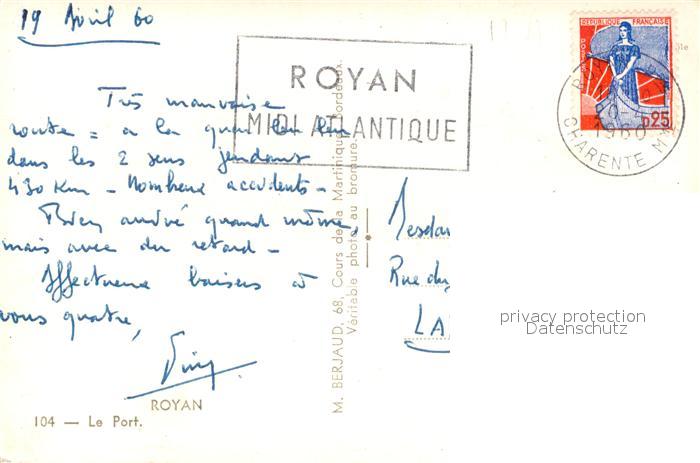 19 Avril 60
ROYAN
MIDI ATLANTIQUE
RÉPUBLIQUE FRANÇAISE
0,25
1960
CHARENTE MME
Très mauvaise
route = à la
dans les 2 sens pendant
430 Km - Nombreux accidents -
Bien arrivé quand même,
mais avec du retard -
Affectueux baisers à
vous quatre,
M. BERJAUD, 68, Cours de la Martinique, Bordeaux.
Véritable photo au bromure.
Mesdam
Rue du
LA
privacy protection
Datenschutz
ROYAN
104 — Le Port.